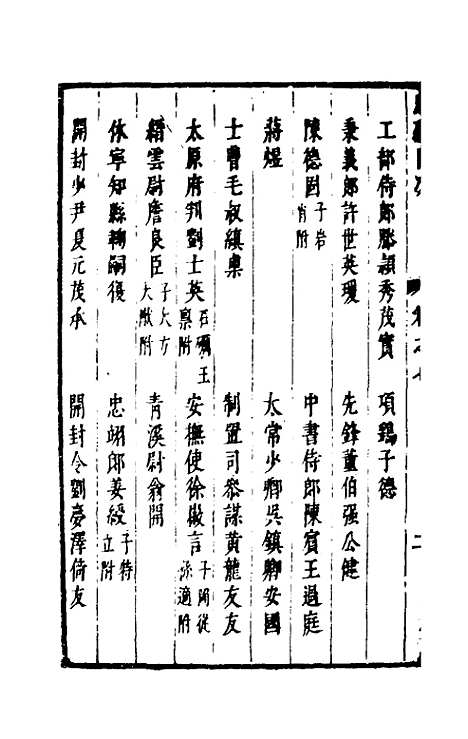 工部侍郎滕穎秀茂實　項鵕子德
秉義郎許世英瓊　先鋒董伯强公健
陳德固子岩肖附　中書侍郎陳寳王過庭
蔣煜　太常少卿吳鎮卿安國
士曹毛叔縝㮚　制置司參謀黄龍友友
太原府判劉士英石礪王禀附　安撫使徐徽言子岡從孫適附
縉雲尉詹良臣子大方大獻附　青溪尉翁開
休寧知縣麴嗣復　忠翊郎姜綬子特立附
開封少尹夏元茂承　開封令劉彥澤倚友
二